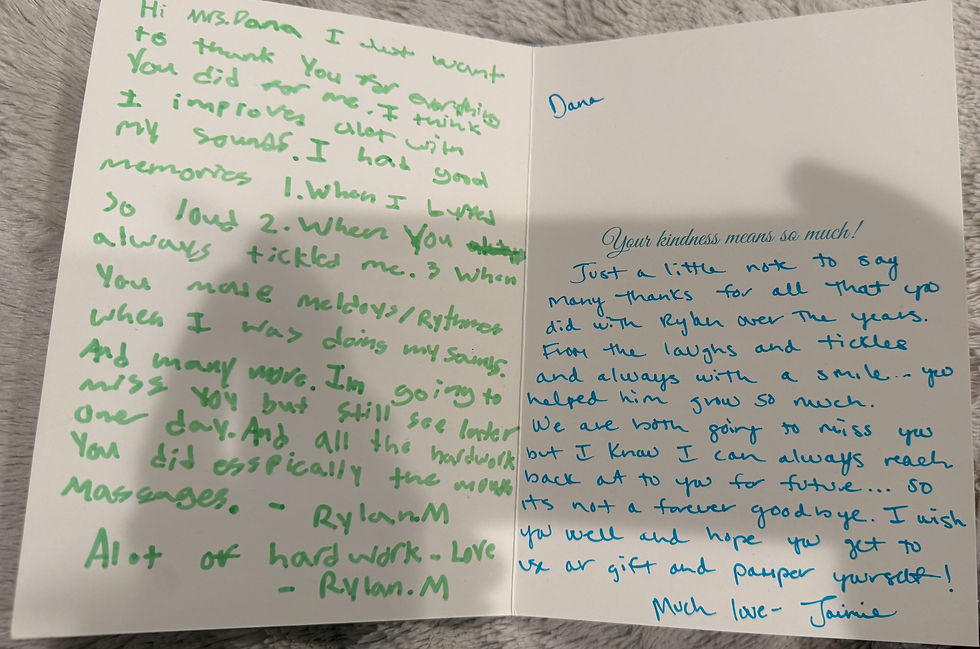 Hi Mrs.Dana I Just want
to thank You for everything
You did for me. I think
I improves alot with
my sounds. I had good
memories 1. When I
so loud 2. When You
always tickled me. 3 When
You made meldoys/Rythmes
when I was doing my sounds.
And many more. Im going to
miss YOU but still see later
One day. And all the hardwork
You did esspically the mouth
Massages. - Rylan.M
Alot of hardwork - Love
- Rylan.M
Dana
Your kindness means so much!
Just a little note to say
many thanks for all that you
did with Rylan over the years.
From the laughs and tickles
and always with a smile... you
helped him grow so much.
We are both going to miss you
but I know I can always reach
back at to you for future... so
its not a forever goodbye. I wish
you well and hope you get to
use ar gift and pamper yourself!
Much love- Jaimie